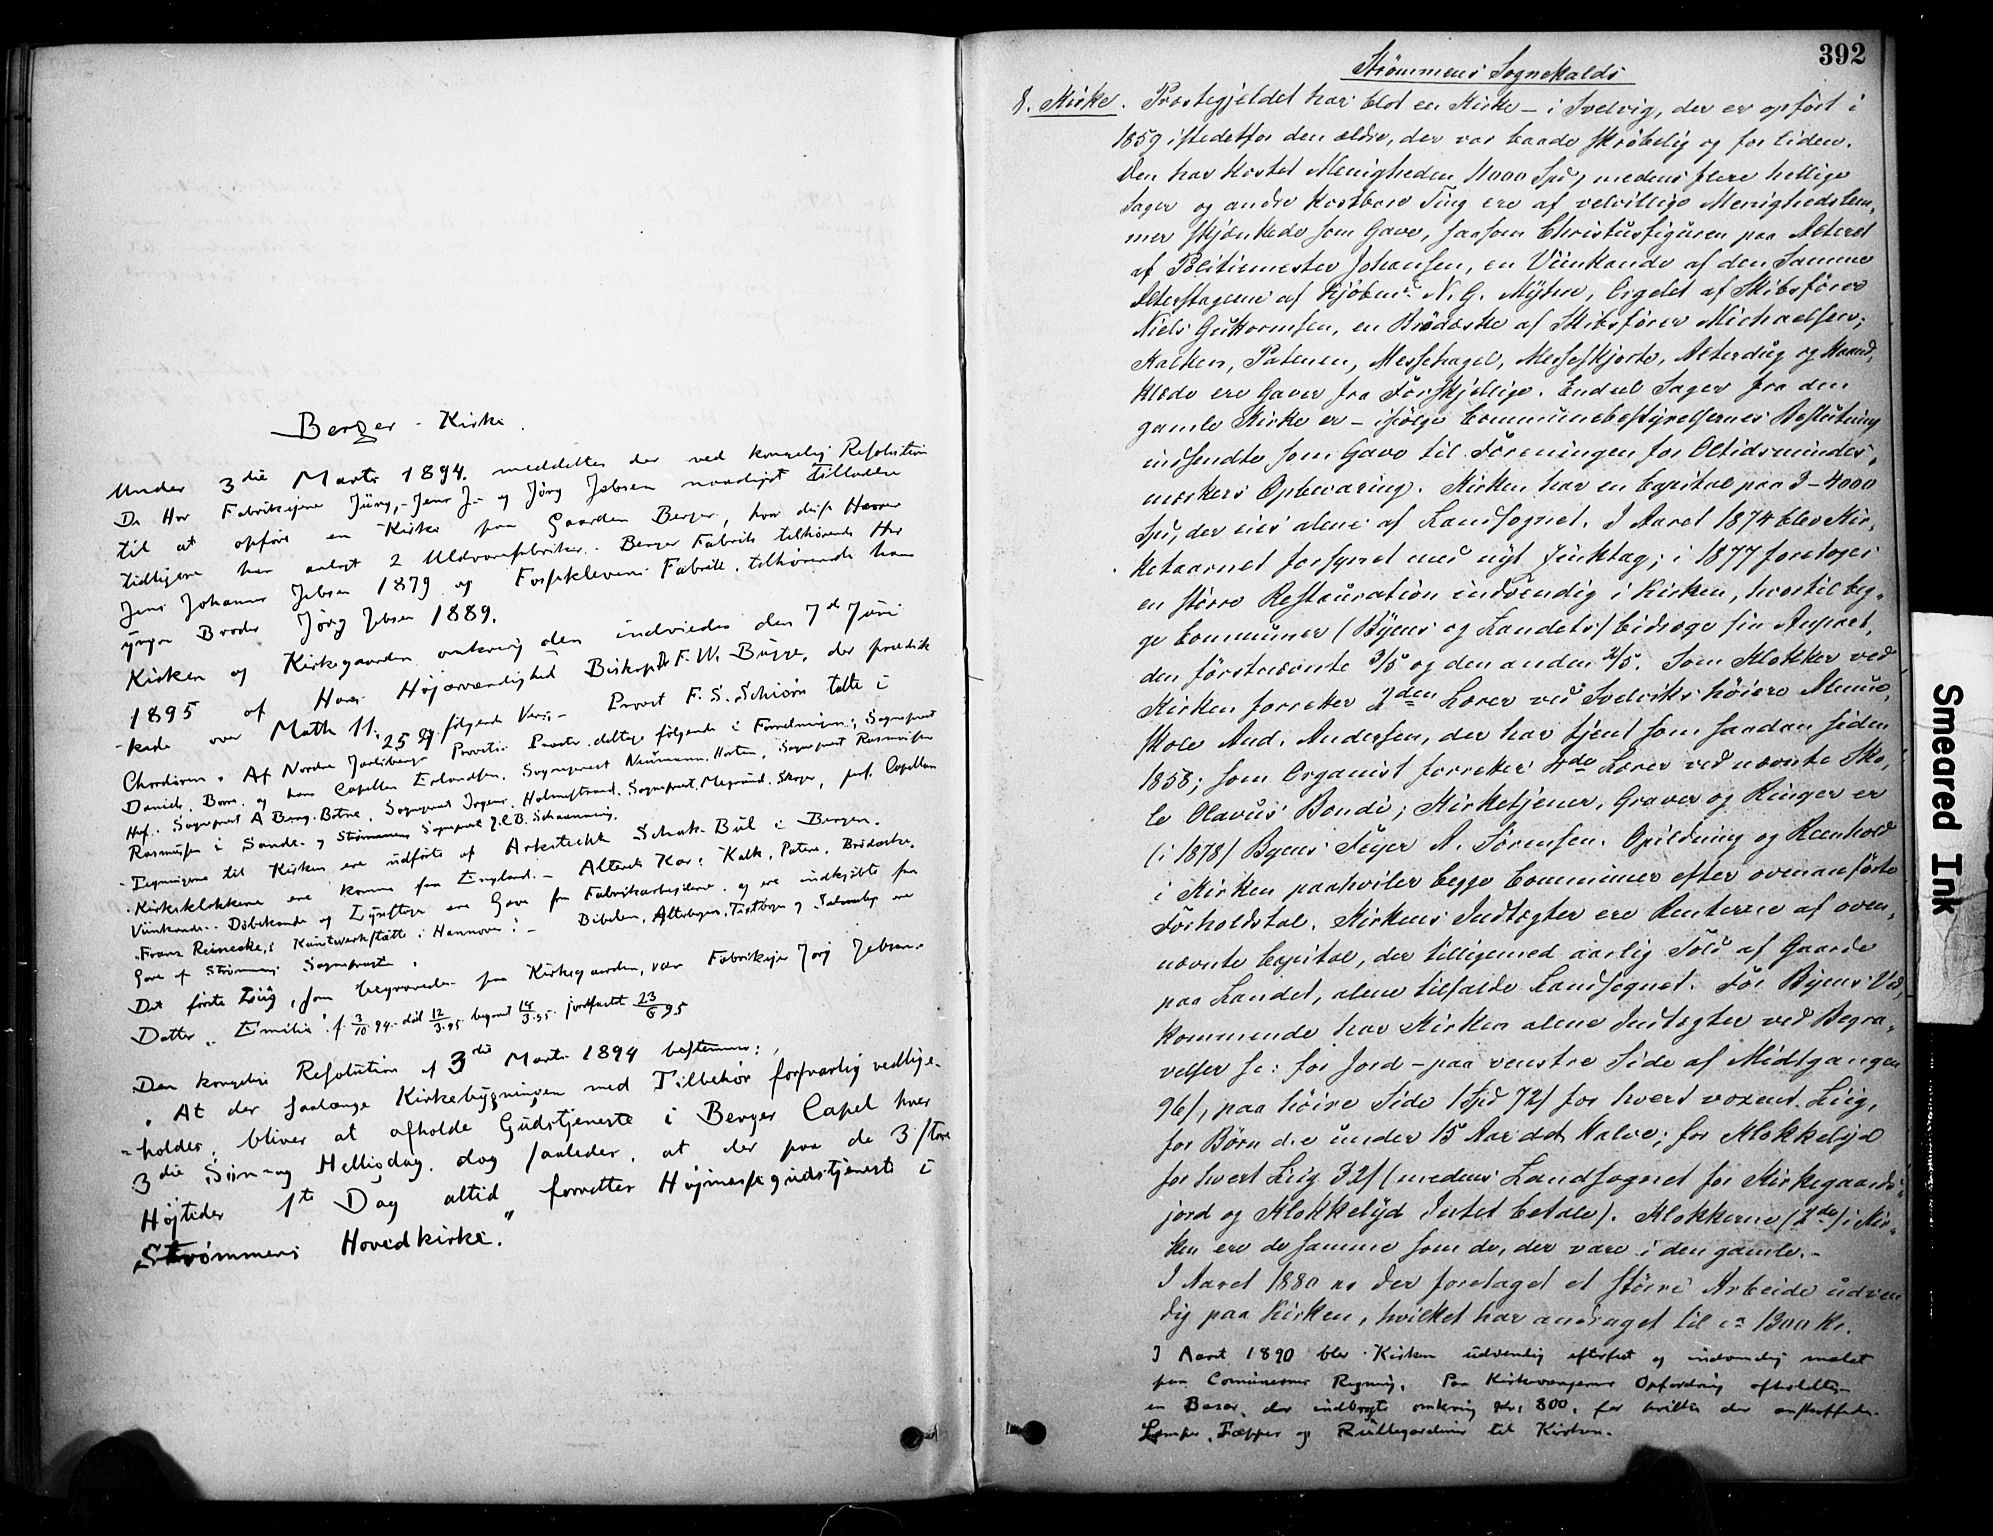 Berger - Kirke.
Under 3die Marts 1894. meddeltes der ved kongelig Resolution
De Hrr Fabrikejere Jürg,- Jens J- og Jörg Jebsen naadigst Tilladelse
til at opføre en Kirke paa Gaarden Berger, hvor disse Herrer
tidligere har anlagt 2 Uldvarefabriker. Berger Fabrik tilhørende Hr
Jens Johannes Jebsen 1879 og Fossekleven Fabrik, tilhørende hans
yngre Broder Jörg Jebsen 1889.
Kirken og Kirkegaarden omkring den indviedes den 7de Juni
1895 af Hans Højærværdighed Biskop Dr F. W. Bugge, der prædik
-kede over Math 11. 25 og følgende Vers,- Provst F. S. Schiørn talte i
Chordøren. Af Nordre Jarlsbergs Provstis Præster deltoge følgende i Forretningen: Sognepræst
Daniels, Borre, og hans Capellan Erlandsen. Sognepræst Neumann. Horten, Sognepræst Rasmussen
Hof. Sognepræst A Berg. Botne, Sognepræst Irgens, Holmestrand. Sognepræst, Megrund. Skoger, pers. Capellan
Rasmussen i Sande- og Strømmens Sognepræst J.C.B. Schaanning.
Tegningerne til Kirken ere udførte af Arkitekt Schak-Bul i Bergen.
Kirkeklokkerne ere komne fra England.- Alterets Kar: Kalk, Patene, Brødæske,
Vinkande- Døbekande og Lysestager ere Gave fra Fabrikarbejderne og ere indkjøbte fra
"Franz Reinecke,s Kunstwerkstätte i Hannover".- Bibelen, Alterbogen, Textbogen og Salmebog ere
Gave af Strømmens Sognepræst.
Det første Liig, som begravedes paa Kirkegaarden, var Fabrikejer Jørg Jebsens
Datter "Emilie" f. 3/10 94. død 12/3.95. begravet 18/3.95. jordfæstet 23/6 95
Den kongelige Resolution af 3die Marts 1894 bestemmer:
"At der saalænge Kirkebygningen med Tilbehør forsvarlig vedlige-
-holdes, bliver at afholde Gudstjeneste i Berger Capel hver
3die Søn- og Helligdag, dog saaledes, at der paa de 3 store
Højtider 1te Dag altid forrettes Højmessegudstjeneste i
Strømmens Hovedkirke."
392
Strømmens Sognekalds
8. Kirke. Præstegjeldet har blot en Kirke - i Svelvig, der er opført i
1859 istedetfor den ældre, der var baade skrøbelig og for liden.
Den har kostet Menigheden 11000 Spd, medens flere hellige
Sager og andre kostbare Ting ere af velvillige Menighedslem,
mer skjænkede som Gave, saasom Christusfiguren paa Alteret
af Politiemester Johansen, en Viinkande af den Samme
Alterstagerne af Kjøbmd N. G. Myhre, Orgelet af Skibsfører
Niels Guttormsen, en Brødæske af Skibsfører Michaelsen;
Kalken, Patenen, Messehagel, Messeskjorte, Alterdug og Haand,
klæde ere Gaver fra Forskjellige. Endeel Sager fra den
gamle Kirke er - ifølge Communebestyrelsernes Beslutning
indsendte som Gave til Foreningen for Oltidsmindes,
mærkers Opbevaring. Kirken har en Capital paa 3-4000
Spd, der eies alene af Landsognet. I Aaret 1874 blev Kir,
ketaarnet forsynet med nyt Zinktag; i 1877 foretoges
en større Restauration indvendig i Kirken, hvortil beg,
ge Communer (Byens og Landets) bidroge sin Anpart,
den førstnævnte 3/5 og den anden 2/5. Som Klokker ved
Kirken forretter 2den Lærer ved Svelviks høiere Almue,
skole And. Andersen, der har tjent som saadan siden
1858; som Organist forretter 1ste Lærer ved nævnte Sko,
le Olavus Bondi; Kirketjener, Graver og Ringer er
(i 1878) Byens Feier A. Sørensen. Opildning og Renhold
i Kirken paahviler begge Communer efter ovenanførte
Forholdstal. Kirkens Indtægter ere Renterne af oven,
nævnte Capital, der tilligemed aarlig Told af Gaarde
paa Landet, alene tilfalde Landsognet. For Byens Ved,
kommende har Kirken alene Indtægter ved Begra,
velser sc: for Jord - paa venstre Side af Midtgangen
96 ß, paa høire Side 1 Spd 72 ß for hvert voxent Liig,
for Børn d.e under 15 Aar det Halve; for Klokkelyd
for hvert Liig 32 ß (medens Landsognet for Kirkegaards,
jord og Klokkelyd Intet betaler). Klokkerne (2de) i Kir,
ken ere de samme som de, der vare i den gamle.-
I Aaret 1880 er der foretaget et større Arbeide udven
dig paa Kirken, hvilket har andraget til ca 1300 Kr.
I Aaret 1890 blev Kirken udvendig efterseet og indvendig malet
paa Communernes Regning. Paa Kirkeværgernes Opfordring afholdtes
en Basar, der indbragte omkring Kr. 800, for hvilke der anskaffedes
Lamper, Tæpper og Rullegardiner til Kirken.
Smeared Ink